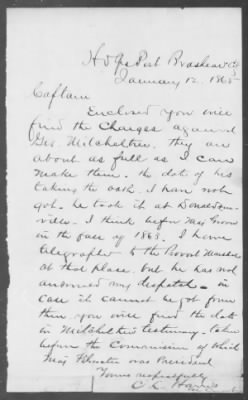 Hd Qrs Post Brashear City
January 12. 1865
Captain
Enclosed you will
find the Charges against
Geo. Mitcheltree. they are
about as full as I can
make them. the date of his
taking the oath. I have not
got. he took it at Donaldson-
ville. I think before Maj
in the fall of 1863. I have
telegraphed to the Provost Marshal
at that place. but he has not
answered my despatch. in
case it cannot be got from
there you will find the date
in Mitcheltree testimony. taken
before the Commission of which
Maj was President
Yours respectfully
C. L. Harris